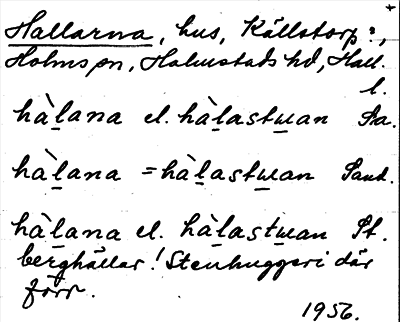 Hallarna, hus, Källstorp?,
Holms sn, Halmstads hd, Hall.
l.
hàḻana el. hàḻastwan Sa.
hàḻana = hàḻastwan Sand.
hàḻana el. hàḻastwan St.
berghällar! Stenhuggeri där
förr.
1956.